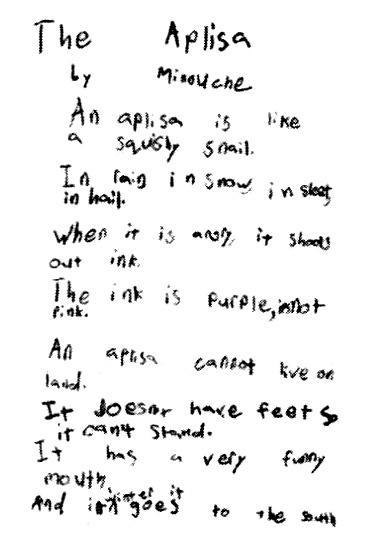 The Aplisa
by Minouche
An aplisa is like
a squisly snail.
In rain in snow, in sleet,
in hail.
When it is angry, it shoots
out ink.
The ink is purple, its not
pink.
An aplisa cannot live on
land.
It doesnt have feet so
it can't stand.
It has a very funny
mouth,
And in winter it goes to the south